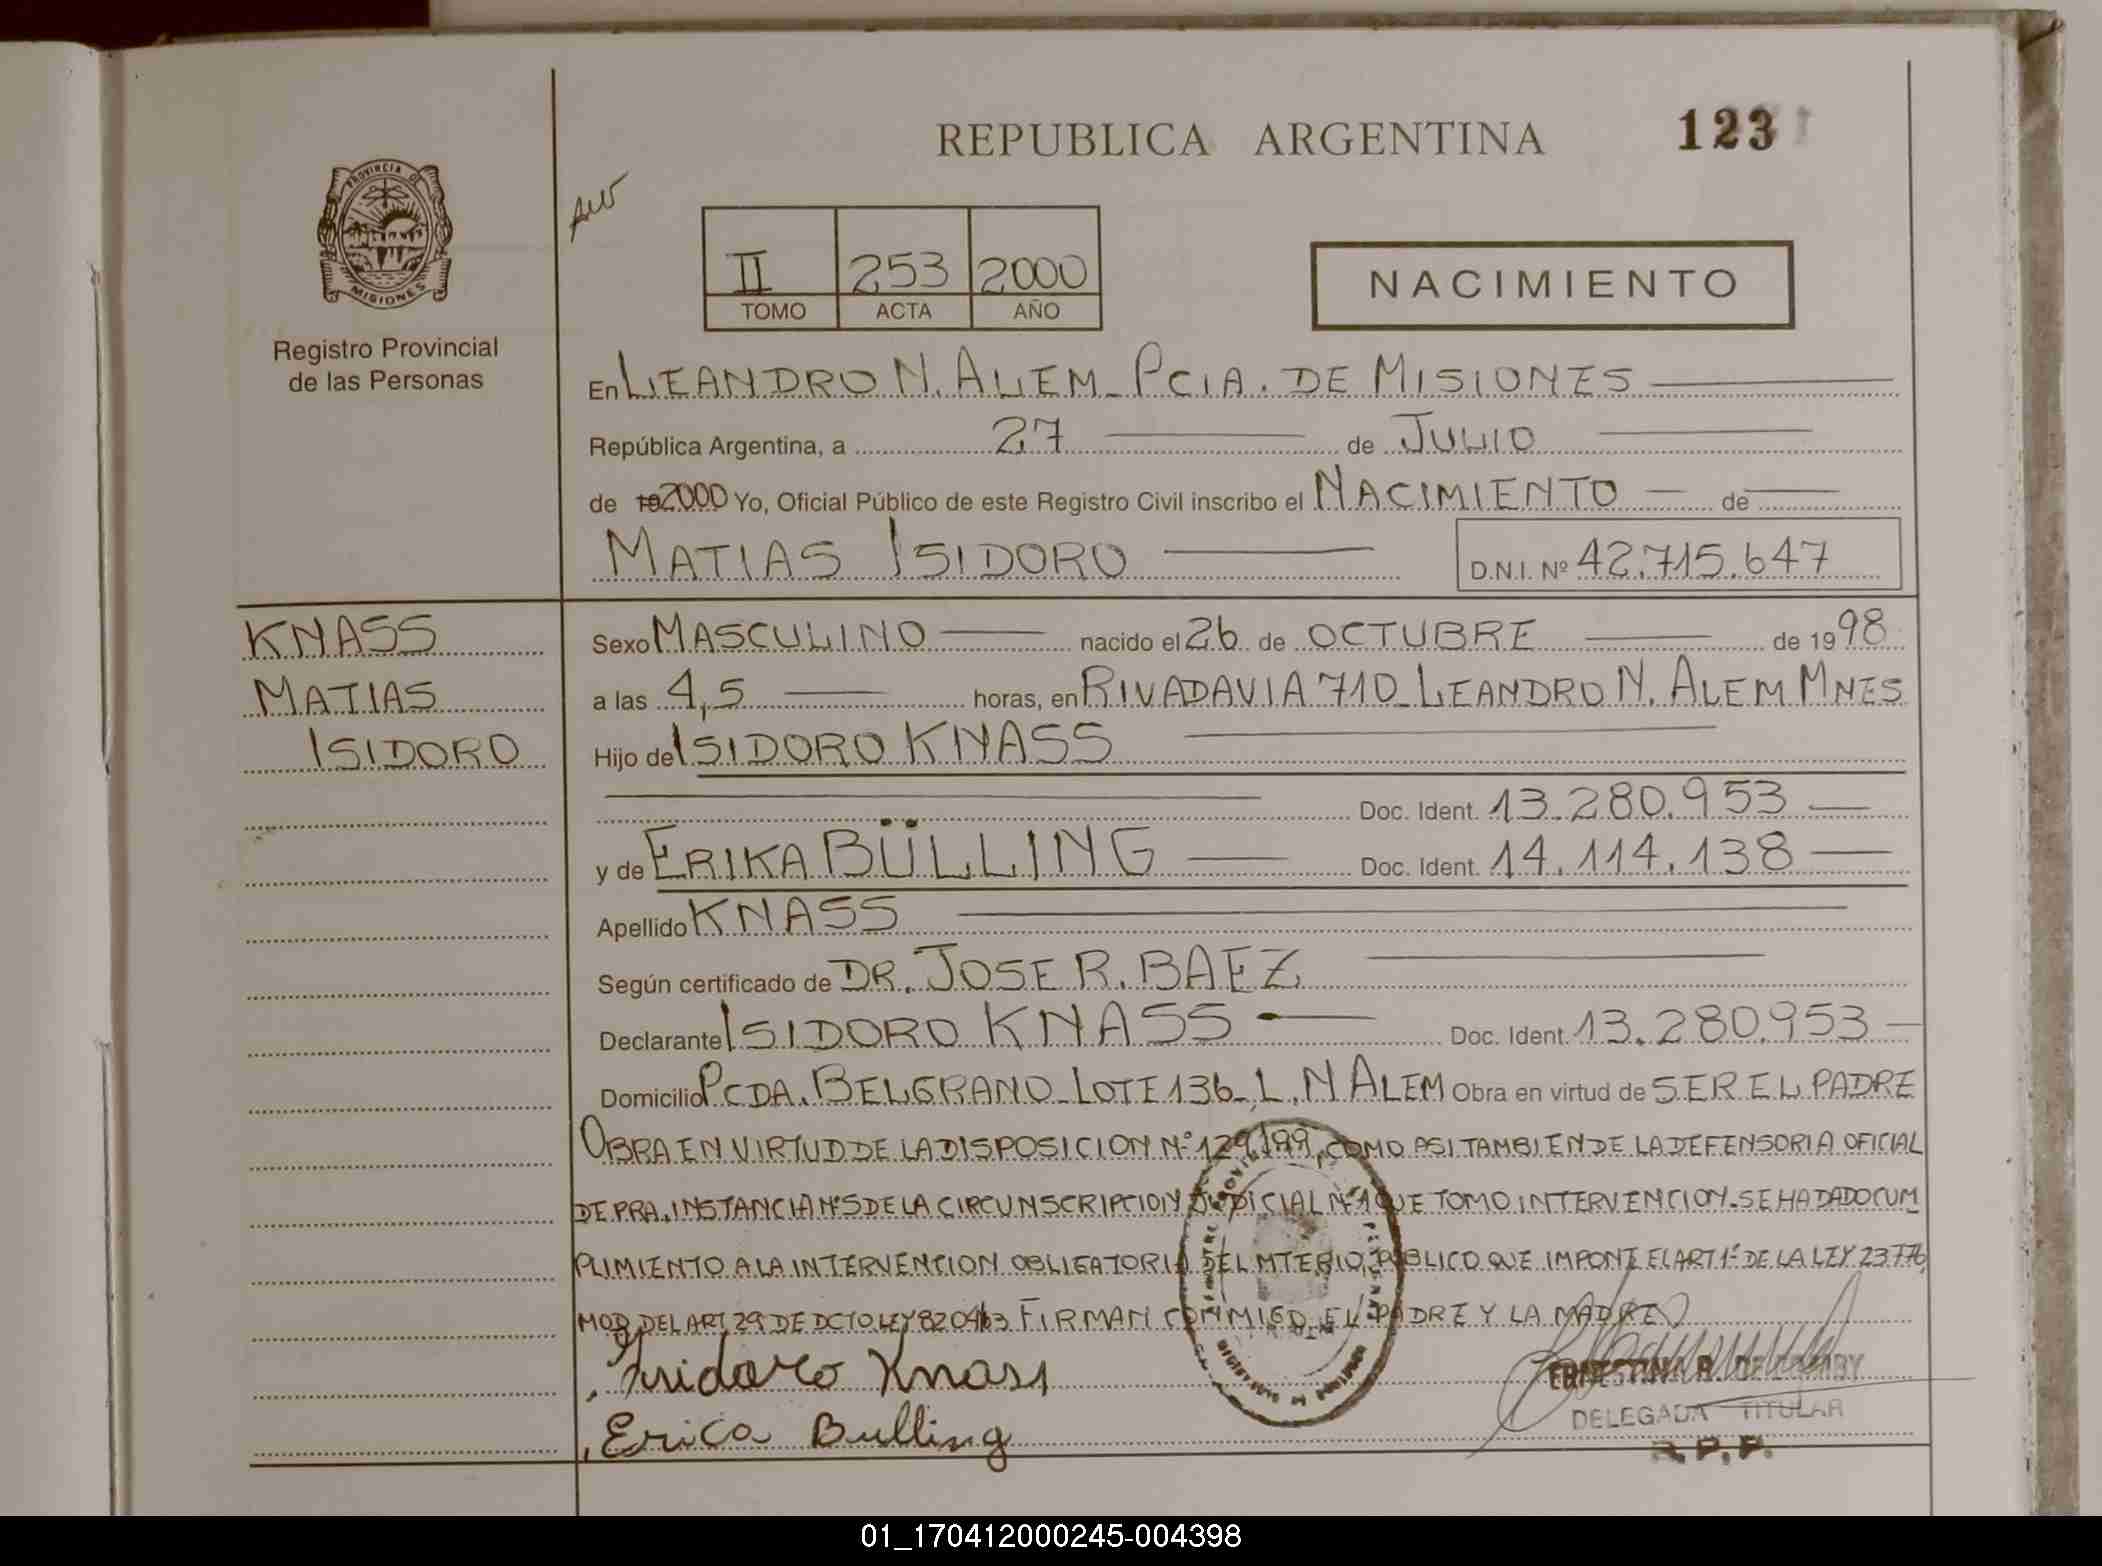 REPUBLICA ARGENTINA
123
PROVINCIA DE
MISIONES
Registro Provincial
de las Personas
II 253 2000
TOMO ACTA AÑO
NACIMIENTO
En LEANDRO N. ALEM_ PCIA. DE MISIONES
República Argentina, a 27 de JULIO
de 19 2000 Yo, Oficial Público de este Registro Civil inscribo el NACIMIENTO de
MATIAS ISIDORO
D.N.I. Nº 42.715.647
KNASS
MATIAS
ISIDORO
Sexo MASCULINO nacido el 26 de OCTUBRE de 1998
a las 4,5 horas, en RIVADAVIA 710_ LEANDRO N. ALEM MNES
Hijo de ISIDORO KNASS
Doc. Ident. 13.280.953
y de ERIKA BÜLLING Doc. Ident. 14.114.138
Apellido KNASS
Según certificado de DR. JOSE R. BAEZ
Declarante ISIDORO KNASS Doc. Ident. 13.280.953
Domicilio PCDA. BELGRANO_ LOTE 136_ L. N ALEM Obra en virtud de SER EL PADRE
OBRA EN VIRTUD DE LA DISPOSICION Nº 129/99, COMO ASI TAMBIEN DE LA DEFENSORIA OFICIAL
DE PRA. INSTANCIA Nº 5 DE LA CIRCUNSCRIPCION JUDICIAL Nº 1 QUE TOMO INTERVENCION. SE HA DADO CUM
PLIMIENTO A LA INTERVENCION OBLIGATORIA DEL MTERIO, PUBLICO QUE IMPONE EL ART 1º DE LA LEY 23776,
MOD DEL ART 29 DE DCTO LEY 8204/63 FIRMAN CONMIGO EL PADRE Y LA MADRE
Isidoro Knass
Erica Bulling
ERNESTINA R.
DELEGADA TITULAR
R.P.P.
01_170412000245-004398